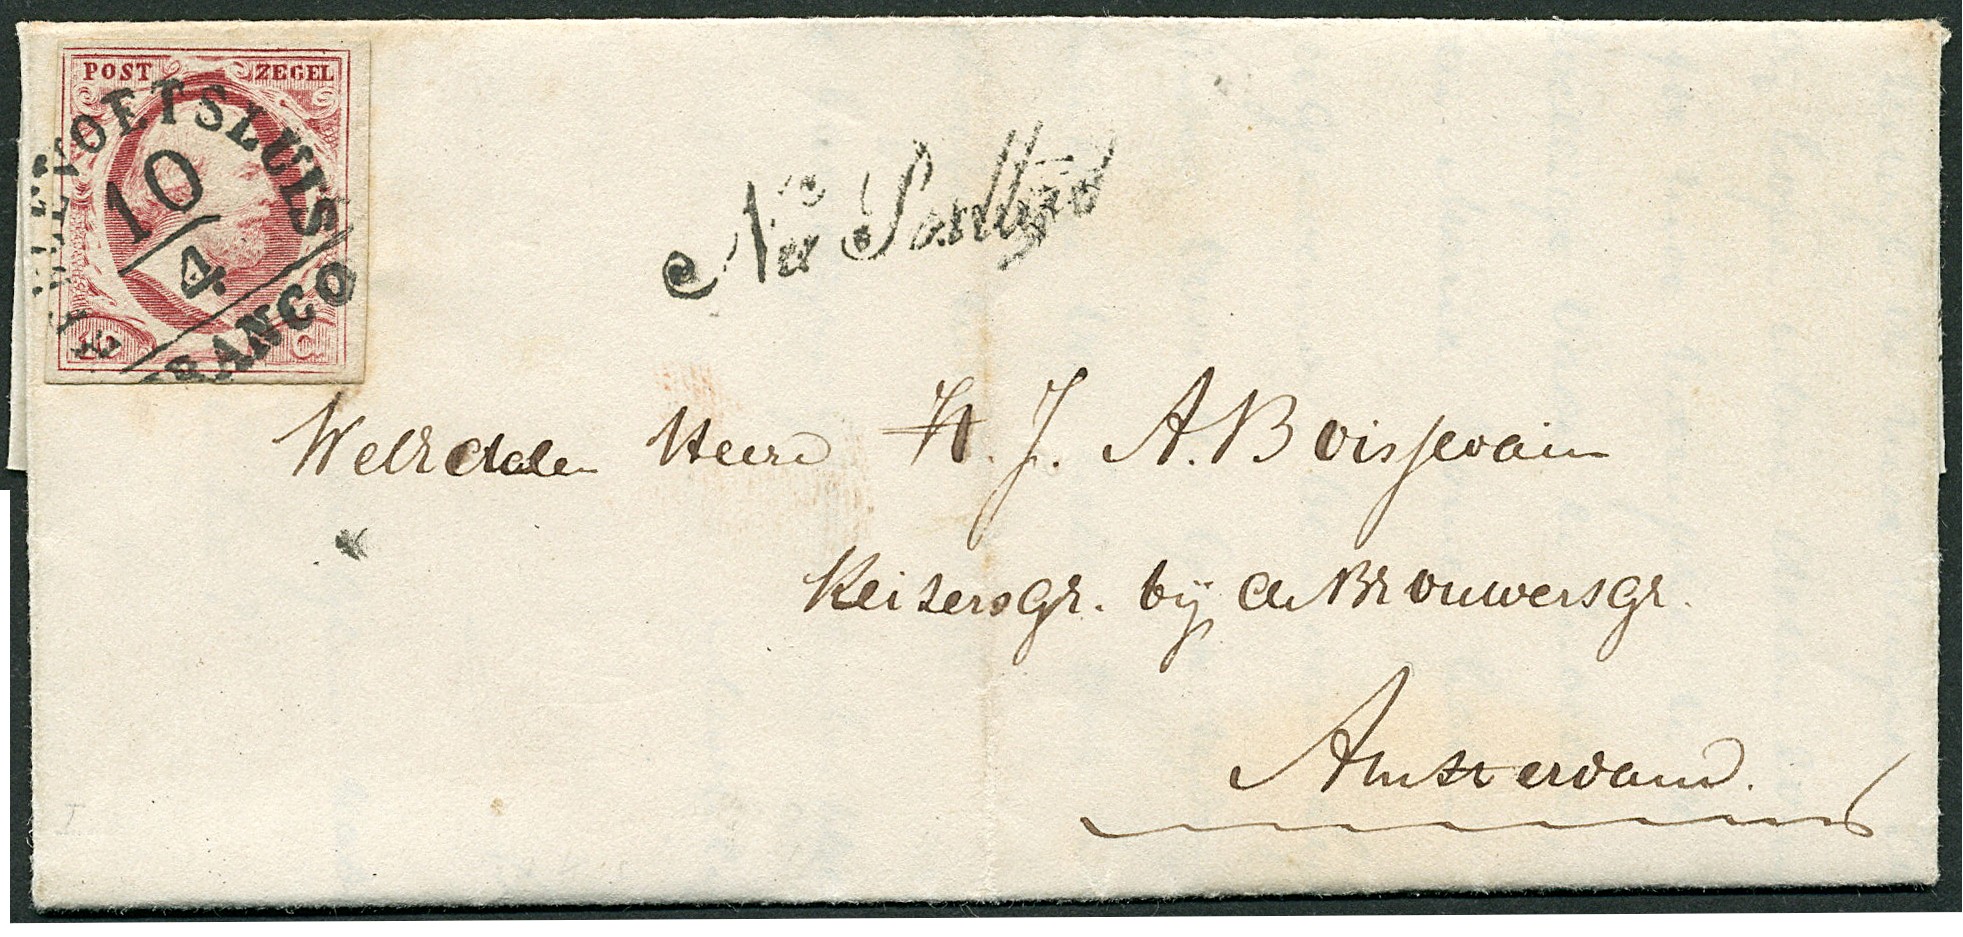 POST ZEGEL
HELLEVOETSLUIS
10
4
FRANCO
10 C.
Na Posttijd
Weled dalen Heere H. J. A. Boissevain
Keizersgr. bij de Brouwersgr.
Amsterdam.